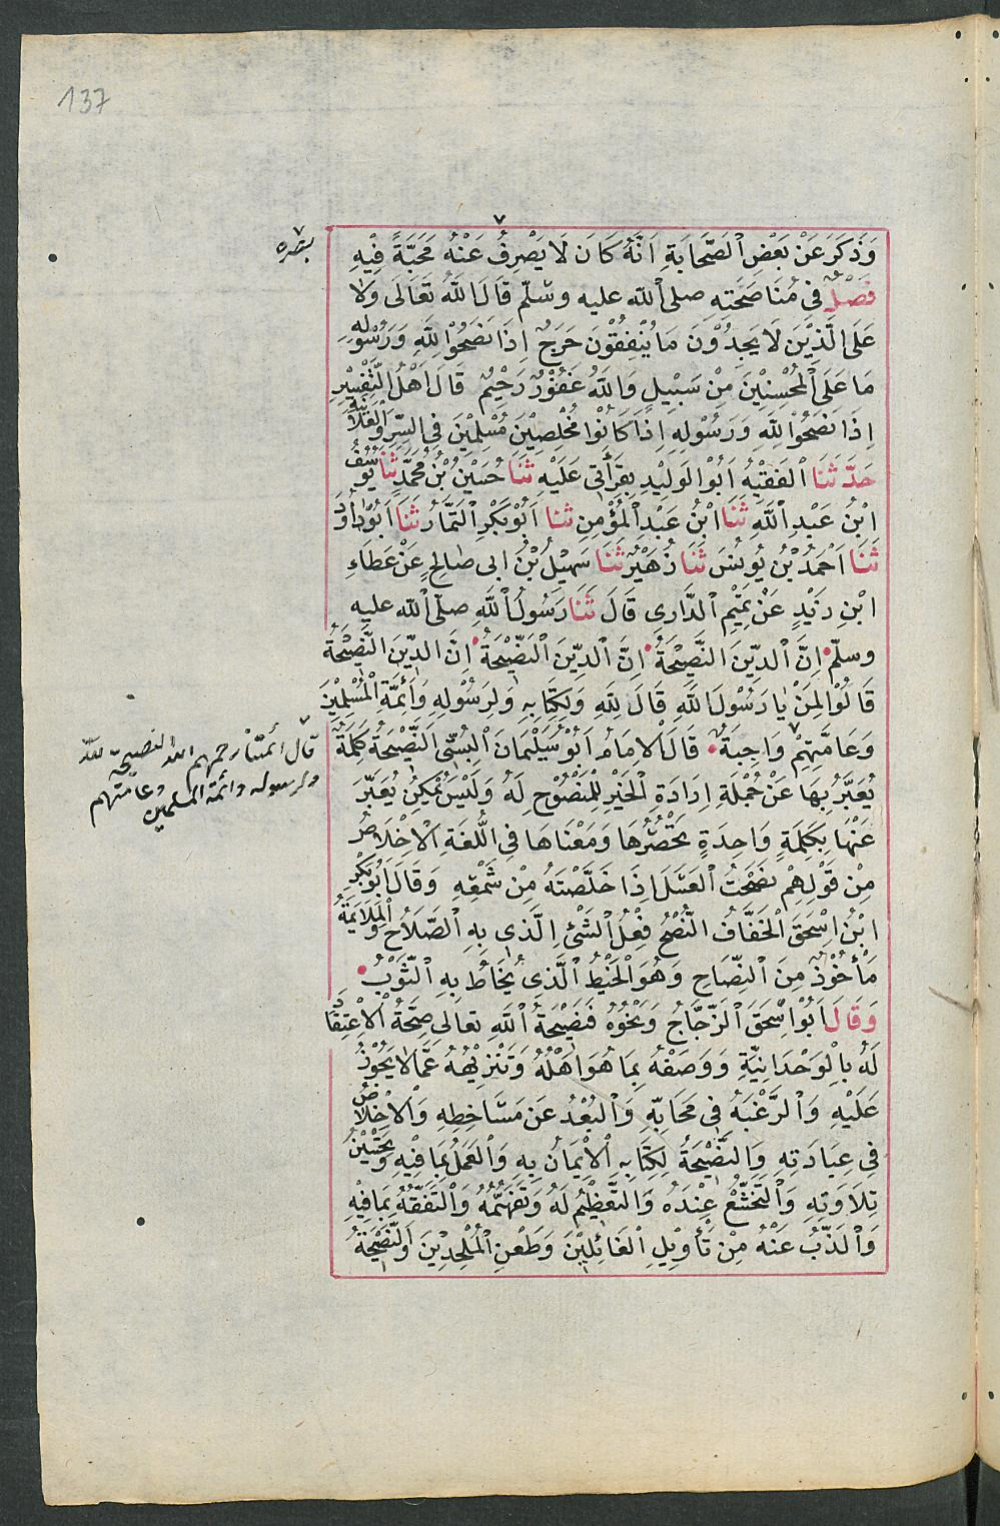 137
وَذَكَرَ عَنْ بَعْضِ الصَّحَابَةِ اَنَّهُ كَانَ لَا يَصْرِفُ عَنْهُ مَحَبَّةً فِيْهِ
بصره
فَصْلٌ فى مُنَاصَحَتِهِ صلى اللّه عليه وسلّم قَالَ اللّٰهُ تَعَالَى وَلَا
عَلَى الَّذِيْنَ لَا يَجِدُوْنَ مَا يُنْفِقُوْنَ حَرَجٌ اِذَا نَصَحُوْا لِلّٰهِ وَرَسُوْلِهِ
مَا عَلَى الْمُحْسِنِيْنَ مِنْ سَبِيْلٍ وَاللّٰهُ غَفُوْرٌ رَحْيِمٌ قَالَ اَهْلُ التَّفْسِيْرِ
اِذَا نَصَحُوْا لِلّٰهِ وَرَسُوْلِهِ اِذَا كَانُوْا مُخْلِصِيْنَ مُسْلِمِيْنَ فِى السِّرِّ وَالْعَلَانِيَةِ
حَدَّثَنَا الْفَقِيْهُ اَبُوْ الْوَلِيْدِ بِقِرَأَتِى عَلَيْهِ ثَنَا حُسَيْنُ بْنُ مُحَمَّدٍ ثَنَا يُوْسُفُ
ابْنُ عَبْدِ اللّٰهِ ثَنَا ابْنُ عَبْدِ الْمُؤْمِنِ ثنا اَبُوْ بَكْرٍ التَّمَّارُ ثَنَا اَبُوْ دَاُودَ
ثَنَا اَحْمَدُ بْنُ يُونُسَ ثَنَا زُهَيْرٌ ثَنَا سَهِيْلُ بْنُ ابى صَالِحٍ عَنْ عَطَاءِ
ابْنِ زَيْدٍ عَنْ تَمِيْمٍ الدَّارِى قَالَ ثَنَا رَسُوْلُ اللّٰهِ صلّى اللّه عليه
وسلّم اِنَّ الدِّيْنَ النَّصِيْحَةُ اِنَّ الدِّيْنَ النَّصِيْحَةُ اِنَّ الدِّيْنَ النَّصِيْحَةُ
قَالُوْا لِمَنْ يَا رَسُوْلَ اللّٰهِ قَالَ لِلّٰهِ وَلِكِتَابِهِ وَلِرَسُوْلِهِ وَاَئِمَّةِ الْمُسْلِمِيْنَ
وَعَامَّتِهِمْ وَاجِبَةٌ قَالَ الْاِمَامُ اَبُوْ سُلَيْمَانَ الْبُسْتِى النَّصِيْحَةُ كَلِمَةٌ
قال ائمتنا رحمهم الله النصيحة للّه
ولرسوله وائمة المسلمين وعامتهم
يُعَبَّرُ بِهَا عَنْ جُمْلَةِ اِرَادَةِ الْخَيْرِ لِلْمَنْصُوْحِ لَهُ وَلَيْسَ يُمْكِنُ يُعَبَّرَ
عَنْهَا بِكَلِمَةٍ وَاحِدَةٍ تَحْصُرُهَا وَمَعْنَاهَا فِى اللُّغَةِ الْاِخْلَاصُ
مِنْ قَوْلِهِمْ نَصَحْتُ الْعَسَلَ اِذَا خَلَّصْتَهُ مِنْ شَمْعِهِ وَقَالَ اَبُوْ بَكْرِ
ابْنُ اِسْحَقَ الْخَفَّافُ النُّصْحُ فِعْلُ الشَّئِ الَّذِى بِهِ الصَّلَاحُ وَالْمُلَايَمَةُ
مَأْخُوْذٌ مِنَ النِّصَاحِ وَهُوَ الْخَيْطُ الَّذِى يُخَاطُ بِهِ الثَّوْبُ
وَقَالَ اَبُوْ اِسْحَقَ الزَّجَّاجُ وَنَحْوُهُ فَنَصِيْحَةُ اللّٰهِ تعالى صِحَّةُ الْاِعْتِقَادِ
لَهُ بِالْوَحْدَانِيَّةِ وَوَصَفْهُ بِمَا هُوَ اَهْلُهُ وَتَنْزِيْهُهُ عَمَّا لَا يَجُوْزُ
عَلَيْهِ وَالرَّغْبَةُ فِى مَحَابِّهِ وَالْبُعْدُ عَنْ مَسَاخِطِهِ وَالْاِخْلَاصُ
فِى عِبَادَتِهِ وَالنَّصِيْحَةُ لِكِتَابِهِ الْاِيْمَانُ بِهِ وَالْعَمَلُ بِمَا فِيْهِ وَتَحْسِيْنُ
تِلَاوَتِهِ وَالتَّخَشُّعُ عِنْدَهُ وَالتَّعْظِيْمُ لَهُ وَتَفَهُّمُهُ وَالتَّفَقُّهُ بِمَا فِيْهِ
وَالذَّبُّ عَنْهُ مِنْ تَأْوِيْلِ الْغَائِلِيْنَ وَطَعْنِ الْمُلْحِدِيْنَ وَالنَّصِيْحَةُ